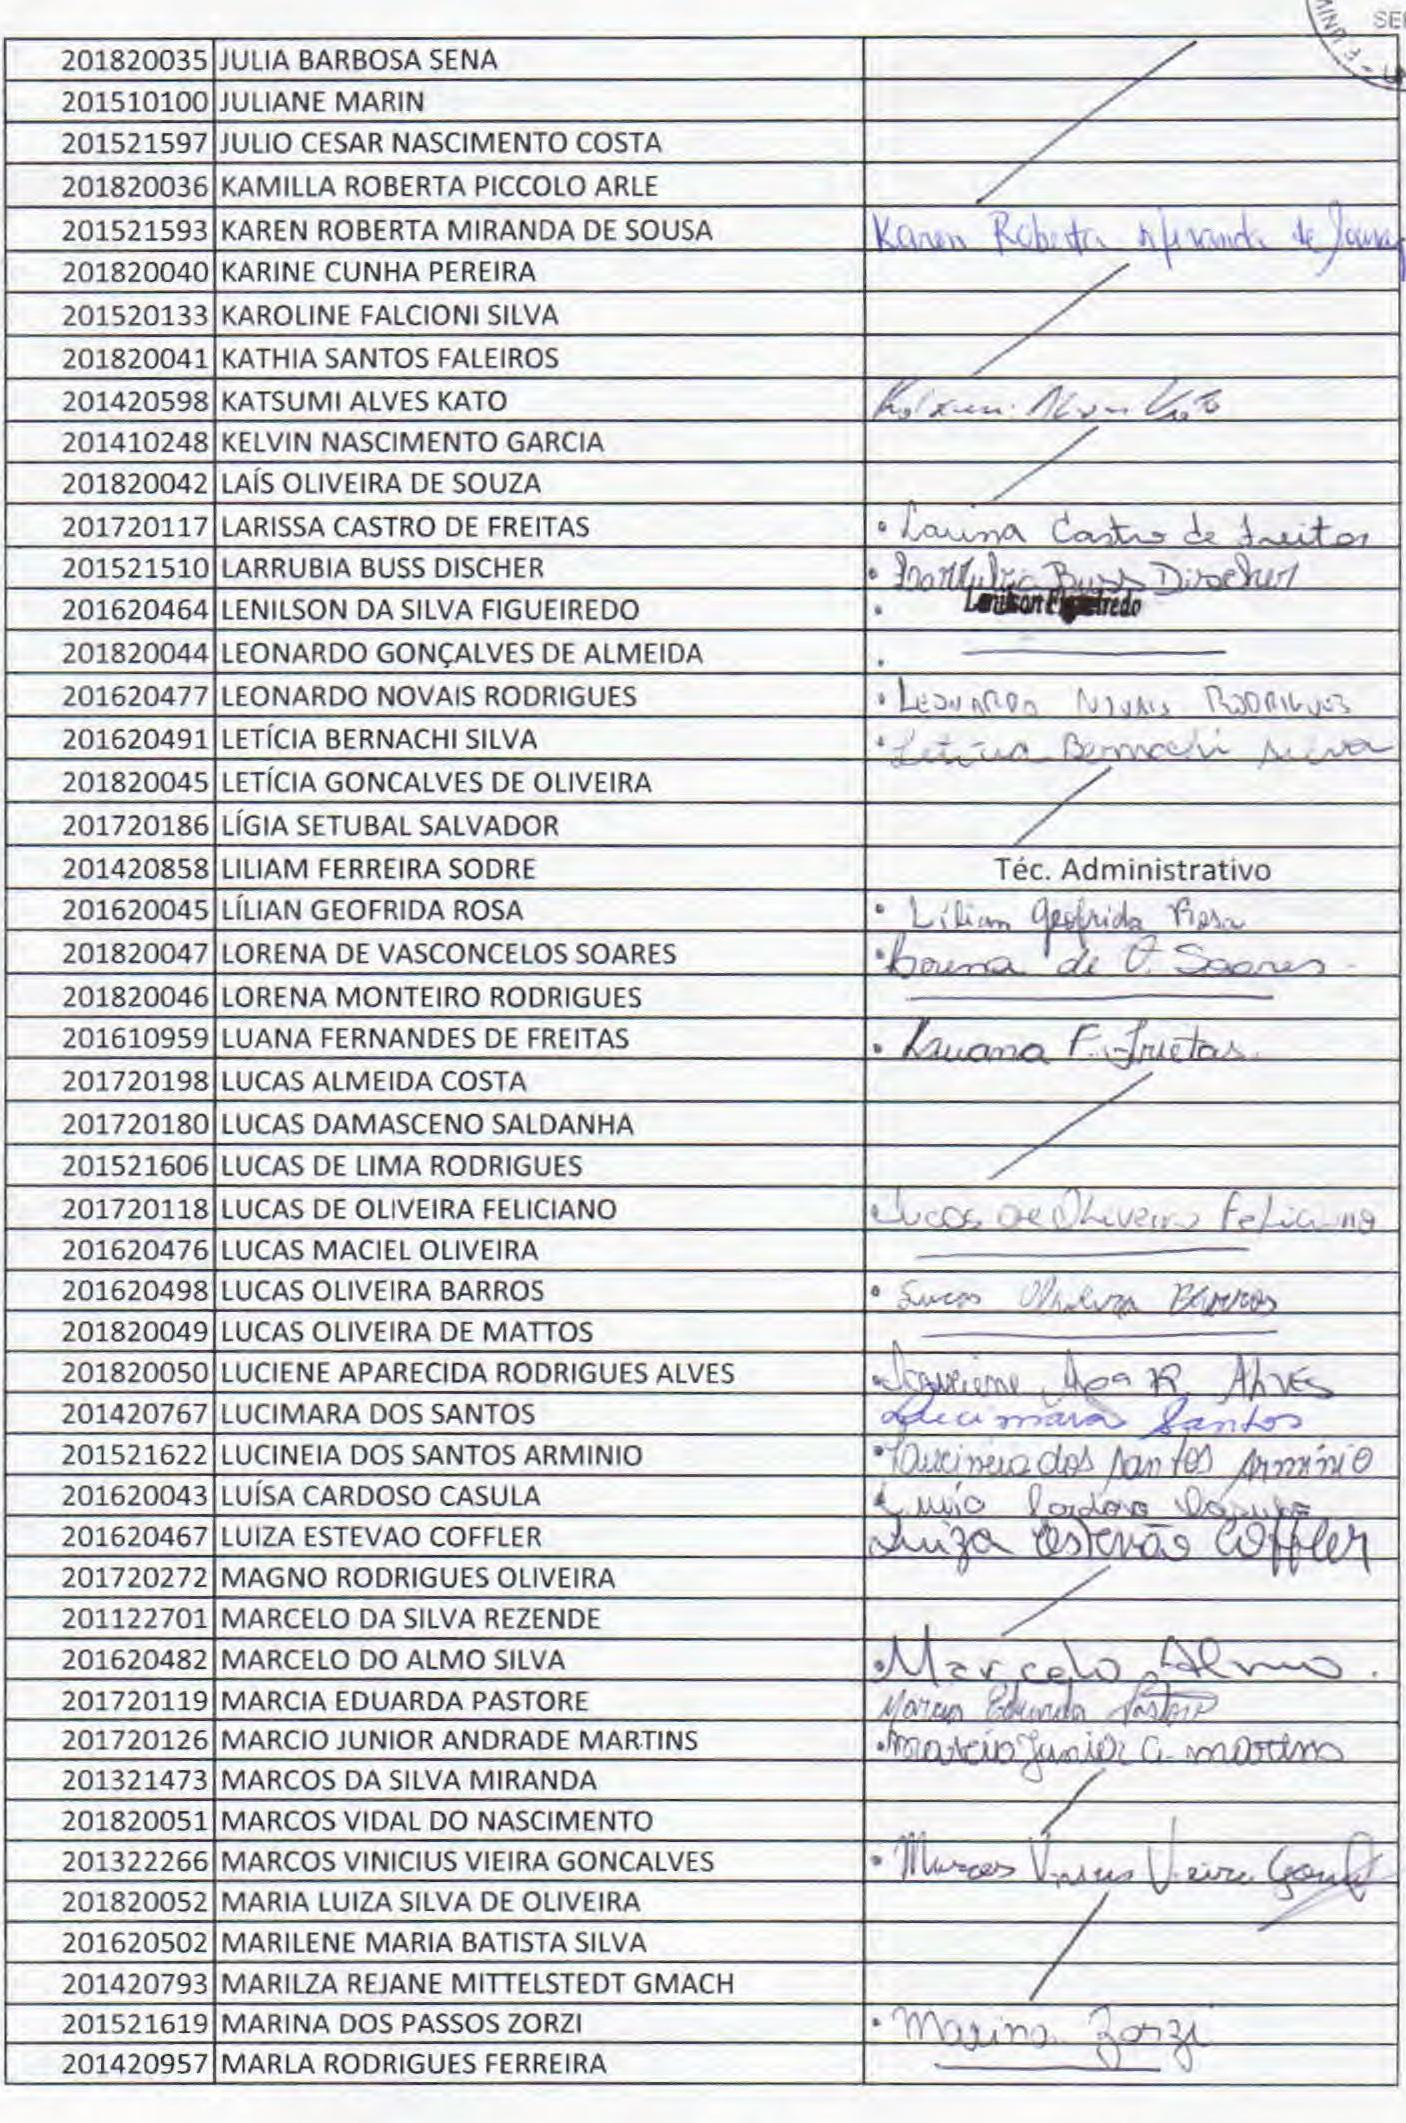 SE
201820035 JULIA BARBOSA SENA
201510100 JULIANE MARIN
201521597 JULIO CESAR NASCIMENTO COSTA
201820036 KAMILLA ROBERTA PICCOLO ARLE
201521593 KAREN ROBERTA MIRANDA DE SOUSA Karen Roberta Miranda de Sousa
201820040 KARINE CUNHA PEREIRA
201520133 KAROLINE FALCIONI SILVA
201820041 KATHIA SANTOS FALEIROS
201420598 KATSUMI ALVES KATO Katsumi Alves Kato
201410248 KELVIN NASCIMENTO GARCIA
201820042 LAÍS OLIVEIRA DE SOUZA
201720117 LARISSA CASTRO DE FREITAS Larissa Castro de Freitas
201521510 LARRUBIA BUSS DISCHER Larrubia Buss Discher
201620464 LENILSON DA SILVA FIGUEIREDO Lenilson Figueiredo
201820044 LEONARDO GONÇALVES DE ALMEIDA
201620477 LEONARDO NOVAIS RODRIGUES LEONARDO NOVAIS RODRIGUES
201620491 LETÍCIA BERNACHI SILVA Letícia Bernachi Silva
201820045 LETÍCIA GONCALVES DE OLIVEIRA
201720186 LÍGIA SETUBAL SALVADOR
201420858 LILIAM FERREIRA SODRE Téc. Administrativo
201620045 LÍLIAN GEOFRIDA ROSA Lílian Geofrida Rosa
201820047 LORENA DE VASCONCELOS SOARES Lorena de V. Soares
201820046 LORENA MONTEIRO RODRIGUES
201610959 LUANA FERNANDES DE FREITAS Luana F. Freitas.
201720198 LUCAS ALMEIDA COSTA
201720180 LUCAS DAMASCENO SALDANHA
201521606 LUCAS DE LIMA RODRIGUES
201720118 LUCAS DE OLIVEIRA FELICIANO Lucas de Oliveira Feliciano
201620476 LUCAS MACIEL OLIVEIRA
201620498 LUCAS OLIVEIRA BARROS Lucas Oliveira Barros
201820049 LUCAS OLIVEIRA DE MATTOS
201820050 LUCIENE APARECIDA RODRIGUES ALVES Luciene Apa R. Alves
201420767 LUCIMARA DOS SANTOS Lucimara Santos
201521622 LUCINEIA DOS SANTOS ARMINIO Lucineia dos Santos Armínio
201620043 LUÍSA CARDOSO CASULA Luísa Cardoso Casula
201620467 LUIZA ESTEVAO COFFLER Luiza Estevão Coffler
201720272 MAGNO RODRIGUES OLIVEIRA
201122701 MARCELO DA SILVA REZENDE
201620482 MARCELO DO ALMO SILVA Marcelo Almo.
201720119 MARCIA EDUARDA PASTORE Marcia Eduarda Pastore
201720126 MARCIO JUNIOR ANDRADE MARTINS Marcio Junior A. Martins
201321473 MARCOS DA SILVA MIRANDA
201820051 MARCOS VIDAL DO NASCIMENTO
201322266 MARCOS VINICIUS VIEIRA GONCALVES Marcos Vinicius Vieira
201820052 MARIA LUIZA SILVA DE OLIVEIRA
201620502 MARILENE MARIA BATISTA SILVA
201420793 MARILZA REJANE MITTELSTEDT GMACH
201521619 MARINA DOS PASSOS ZORZI Marina Zorzi
201420957 MARLA RODRIGUES FERREIRA